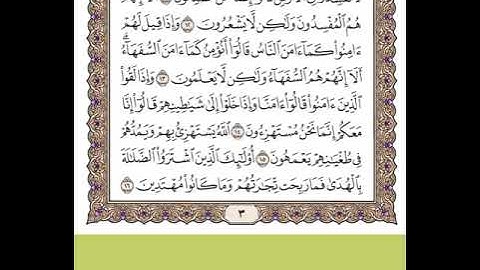 هُمُ ٱلْمُفْسِدُونَ وَلَٰكِن لَّا يَشْعُرُونَ ١٢ وَإِذَا قِيلَ لَهُمْ
ءَامِنُوا۟ كَمَآ ءَامَنَ ٱلنَّاسُ قَالُوٓا۟ أَنُؤْمِنُ كَمَآ ءَامَنَ ٱلسُّفَهَآءُ ۗ
أَلَآ إِنَّهُمْ هُمُ ٱلسُّفَهَآءُ وَلَٰكِن لَّا يَعْلَمُونَ ١٣ وَإِذَا لَقُوا۟
ٱلَّذِينَ ءَامَنُوا۟ قَالُوٓا۟ ءَامَنَّا وَإِذَا خَلَوْا۟ إِلَىٰ شَيَٰطِينِهِمْ قَالُوٓا۟ إِنَّا
مَعَكُمْ إِنَّمَا نَحْنُ مُسْتَهْزِءُونَ ١٤ ٱللَّهُ يَسْتَهْزِئُ بِهِمْ وَيَمُدُّهُمْ
فِى طُغْيَٰنِهِمْ يَعْمَهُونَ ١٥ أُو۟لَٰٓئِكَ ٱلَّذِينَ ٱشْتَرَوُا۟ ٱلضَّلَٰلَةَ
بِٱلْهُدَىٰ فَمَا رَبِحَت تِّجَٰرَتُهُمْ وَمَا كَانُوا۟ مُهْتَدِينَ ١٦
٣